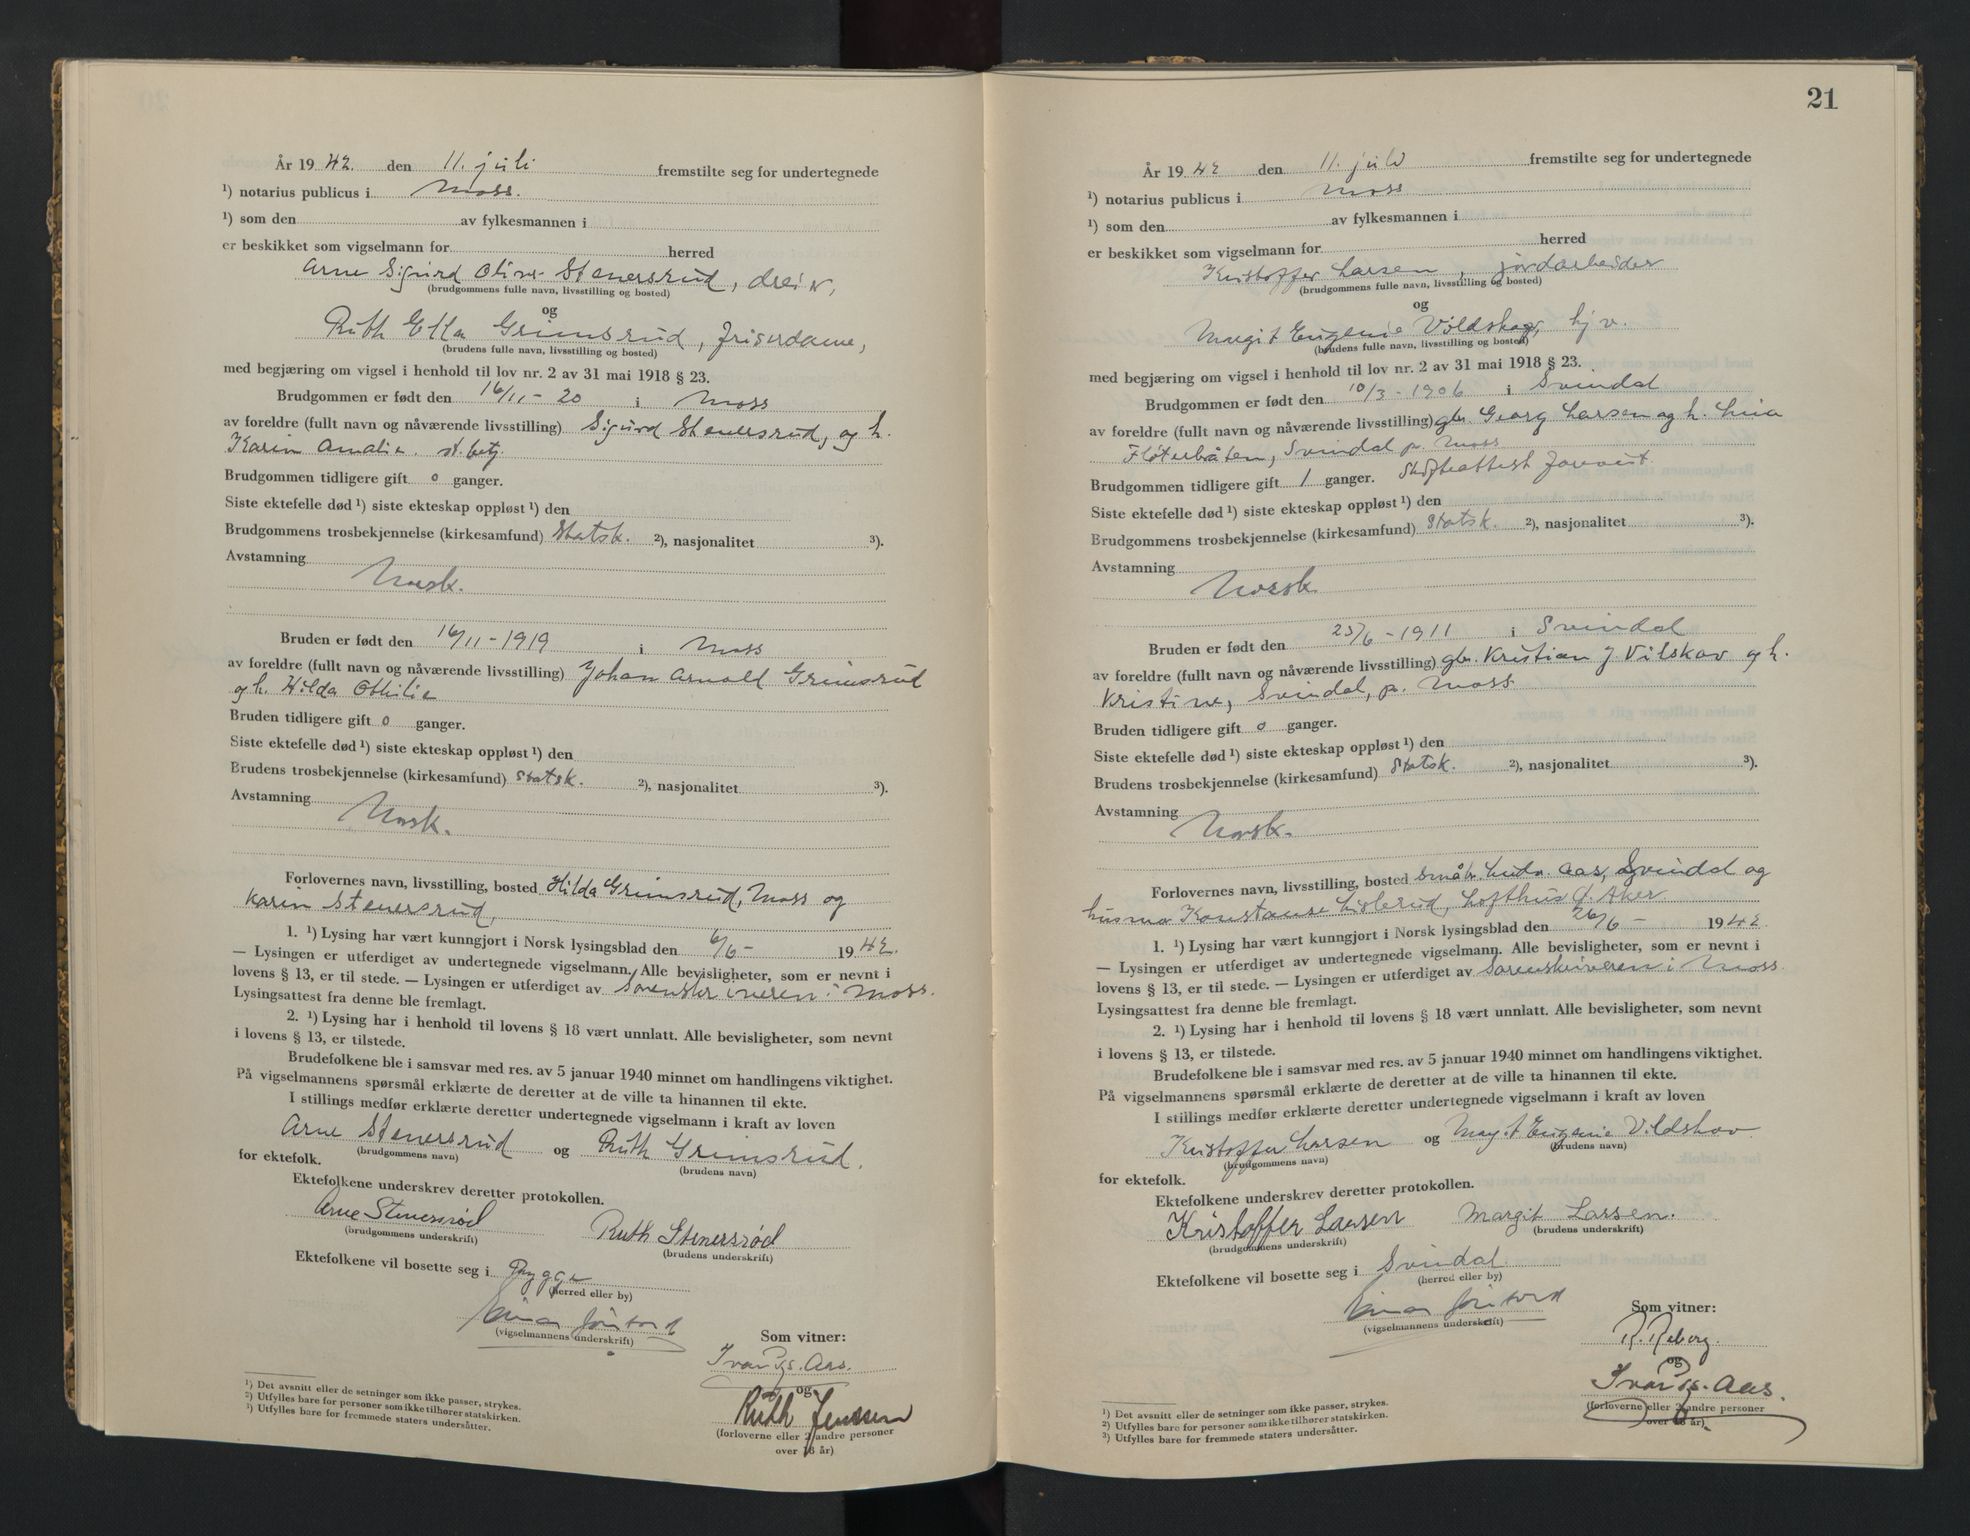 År 1942. den 11. juli fremstilte seg for undertegnede
¹) notarius publicus i Moss.
¹) som den av fylkesmannen i
er beskikket som vigselmann for herred
Arne Sigurd Oliver Stenersrud, dreier,
(brudgommens fulle navn, livsstilling og bosted)
og
Ruth Ella Grimsrud, friserdame,
(brudens fulle navn, livsstilling og bosted)
med begjæring om vigsel i henhold til lov nr. 2 av 31 mai 1918 § 23.
Brudgommen er født den 16/11 - 20 i Moss
av foreldre (fullt navn og nåværende livsstilling) Sigurd Stenersrud, og h.
Karin Amalie. st.betj.
Brudgommen tidligere gift 0 ganger.
Siste ektefelle død ¹) siste ekteskap oppløst ¹) den
Brudgommens trosbekjennelse (kirkesamfund) Statsk. ²), nasjonalitet ³).
Avstamning
Norsk.
Bruden er født den 16/11 - 1919 i Moss
av foreldre (fullt navn og nåværende livsstilling) Johan Arnold Grimsrud
og h. Hilda Othilie
Bruden tidligere gift 0 ganger.
Siste ektefelle død ¹) siste ekteskap oppløst ¹) den
Brudens trosbekjennelse (kirkesamfund) Statsk. ²), nasjonalitet ³).
Avstamning
Norsk.
Forlovernes navn, livsstilling, bosted Hilda Grimsrud, Moss og
Karin Stenersrud,
1. ¹) Lysing har vært kunngjort i Norsk lysingsblad den 6/6 - 1942.
— Lysingen er utferdiget av undertegnede vigselmann. Alle bevisligheter, som er nevnt i
lovens § 13, er til stede. — Lysingen er utferdiget av Sorenskriveren i Moss.
Lysingsattest fra denne ble fremlagt.
2. ¹) Lysing har i henhold til lovens § 18 vært unnlatt. Alle bevisligheter, som nevnt
i lovens § 13, er tilstede.
Brudefolkene ble i samsvar med res. av 5 januar 1940 minnet om handlingens viktighet.
På vigselmannens spørsmål erklærte de deretter at de ville ta hinannen til ekte.
I stillings medfør erklærte deretter undertegnede vigselmann i kraft av loven
Arne Stenersrud og Ruth Grimsrud.
(brudgommens navn) (brudens navn)
for ektefolk.
Ektefolkene underskrev deretter protokollen.
Arne Stenersrød Ruth Stenersrød
(brudgommens underskrift) (brudens underskrift)
Ektefolkene vil bosette seg i Rygge
(herred eller by)
(vigselmannens underskrift)
Som vitner:
Ivar Aas.
og
Ruth Jenssen
(forloverne eller 2 andre personer
over 18 år)
¹) Det avsnitt eller de setninger som ikke passer, strykes.
²) Utfylles bare for personer som ikke tilhører statskirken.
³) Utfylles bare for fremmede staters undersåtter.
21
År 1942 den 11. juli fremstilte seg for undertegnede
¹) notarius publicus i Moss
¹) som den av fylkesmannen i
er beskikket som vigselmann for herred
Kristoffer Larsen, jordarbeider
(brudgommens fulle navn, livsstilling og bosted)
og
Margit Eugenie Vildskog, hj v.
(brudens fulle navn, livsstilling og bosted)
med begjæring om vigsel i henhold til lov nr. 2 av 31 mai 1918 § 23.
Brudgommen er født den 10/3 - 1906 i Svindal
av foreldre (fullt navn og nåværende livsstilling) gbr. Georg Larsen og h. Lina
Fløterbråten, Svindal p. Moss
Brudgommen tidligere gift 1 ganger. Skifteattest forevist.
Siste ektefelle død ¹) siste ekteskap oppløst ¹) den
Brudgommens trosbekjennelse (kirkesamfund) Statsk. ²), nasjonalitet ³).
Avstamning
Norsk
Bruden er født den 25/6 - 1911 i Svindal
av foreldre (fullt navn og nåværende livsstilling) gbr. Kristian J. Vilskov og h.
Kristine, Svindal, p. Moss
Bruden tidligere gift 0 ganger.
Siste ektefelle død ¹) siste ekteskap oppløst ¹) den
Brudens trosbekjennelse (kirkesamfund) Statsk. ²), nasjonalitet ³).
Avstamning
Norsk.
Forlovernes navn, livsstilling, bosted småbr. Ludv. Aas, Svindal og
husmo Konstanse Lislerud, Lofthus Ø. Aker
1. ¹) Lysing har vært kunngjort i Norsk lysingsblad den 26/6 - 1942.
— Lysingen er utferdiget av undertegnede vigselmann. Alle bevisligheter, som er nevnt i
lovens § 13, er til stede. — Lysingen er utferdiget av Sorenskriveren i Moss.
Lysingsattest fra denne ble fremlagt.
2. ¹) Lysing har i henhold til lovens § 18 vært unnlatt. Alle bevisligheter, som nevnt
i lovens § 13, er tilstede.
Brudefolkene ble i samsvar med res. av 5 januar 1940 minnet om handlingens viktighet.
På vigselmannens spørsmål erklærte de deretter at de ville ta hinannen til ekte.
I stillings medfør erklærte deretter undertegnede vigselmann i kraft av loven
Kristoffer Larsen og Margit Eugenie Vildskov
(brudgommens navn) (brudens navn)
for ektefolk.
Ektefolkene underskrev deretter protokollen.
Kristoffer Larsen Margit Larsen.
(brudgommens underskrift) (brudens underskrift)
Ektefolkene vil bosette seg i Svindal
(herred eller by)
(vigselmannens underskrift)
Som vitner:
R. Reberg.
og
Ivar Aas.
(forloverne eller 2 andre personer
over 18 år)
¹) Det avsnitt eller de setninger som ikke passer, strykes.
²) Utfylles bare for personer som ikke tilhører statskirken.
³) Utfylles bare for fremmede staters undersåtter.